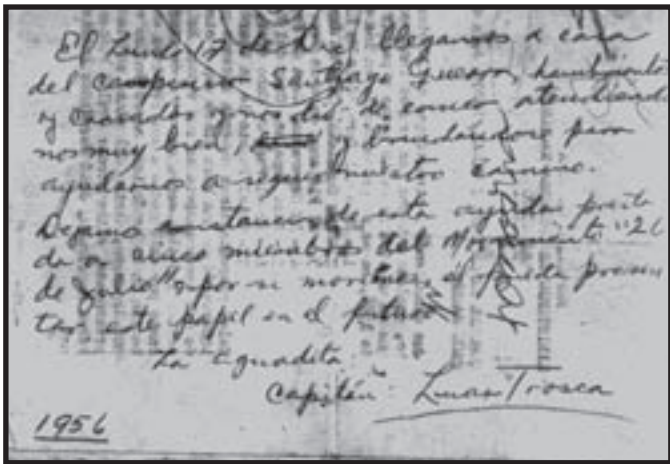 El Lunes 17 de Dic. llegamos a casa
del campesino Santiago Guerra, hambrientos
y cansados y nos dió de comer atendiendo
nos muy bien, y brindandose para
ayudarnos a seguir nuestro camino.
Dejamos constancia de esta ayuda presta
da a cinco miembros del Movimiento "26
de Julio" por si morimos, el pueda presen
tar este papel en el futuro.
La Aguadita
Capitán Luna
1956